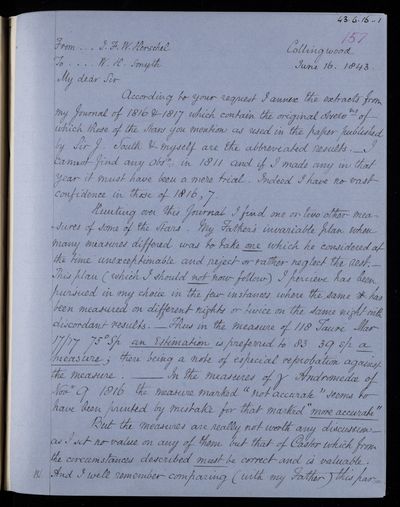 43-6-16-1
157
From ... J. F. W. Herschel
Collingwood
To .... W. H. Smyth
June 16. 1843.
My dear Sir
According to your request I annex the extracts from
my Journal of 1816 & 1817 which contain the original observns of
which those of the stars you mention as used in the paper published
by Sir J. South & myself are the abbreviated results. — I
cannot find any obsns in 1811 and if I made any in that
year it must have been a mere trial. Indeed I have no vast
confidence in those of 1816, 7
Hunting over this Journal I find one or two other mea-
sures of some of the stars. My Father's invariable plan when
many measures differed was to take one which he considered at
the time unexceptionable and reject or rather neglect the rest. —
This plan (which I should not now follow) I perceive has been
pursued in my choice in the few instances where the same * has
been measured on different nights or twice on the same night with
discordant results. — Thus in the measure of 118 Tauri Mar
17/17 75° Sp an estimation is preferred to 83 39 sp a
measure; there being a note of especial reprobation against
the measure. — In the measures of γ Andromedae of
Novr 9 1816 the measure marked "not accurate" seems to
have been printed by mistake for that marked "more accurate"
But the measures are really not worth any discussion —
as I set no value on any of them but that of Castor which from
the circumstances described must be correct and is valuable.
And I well remember comparing (with my Father) this par-